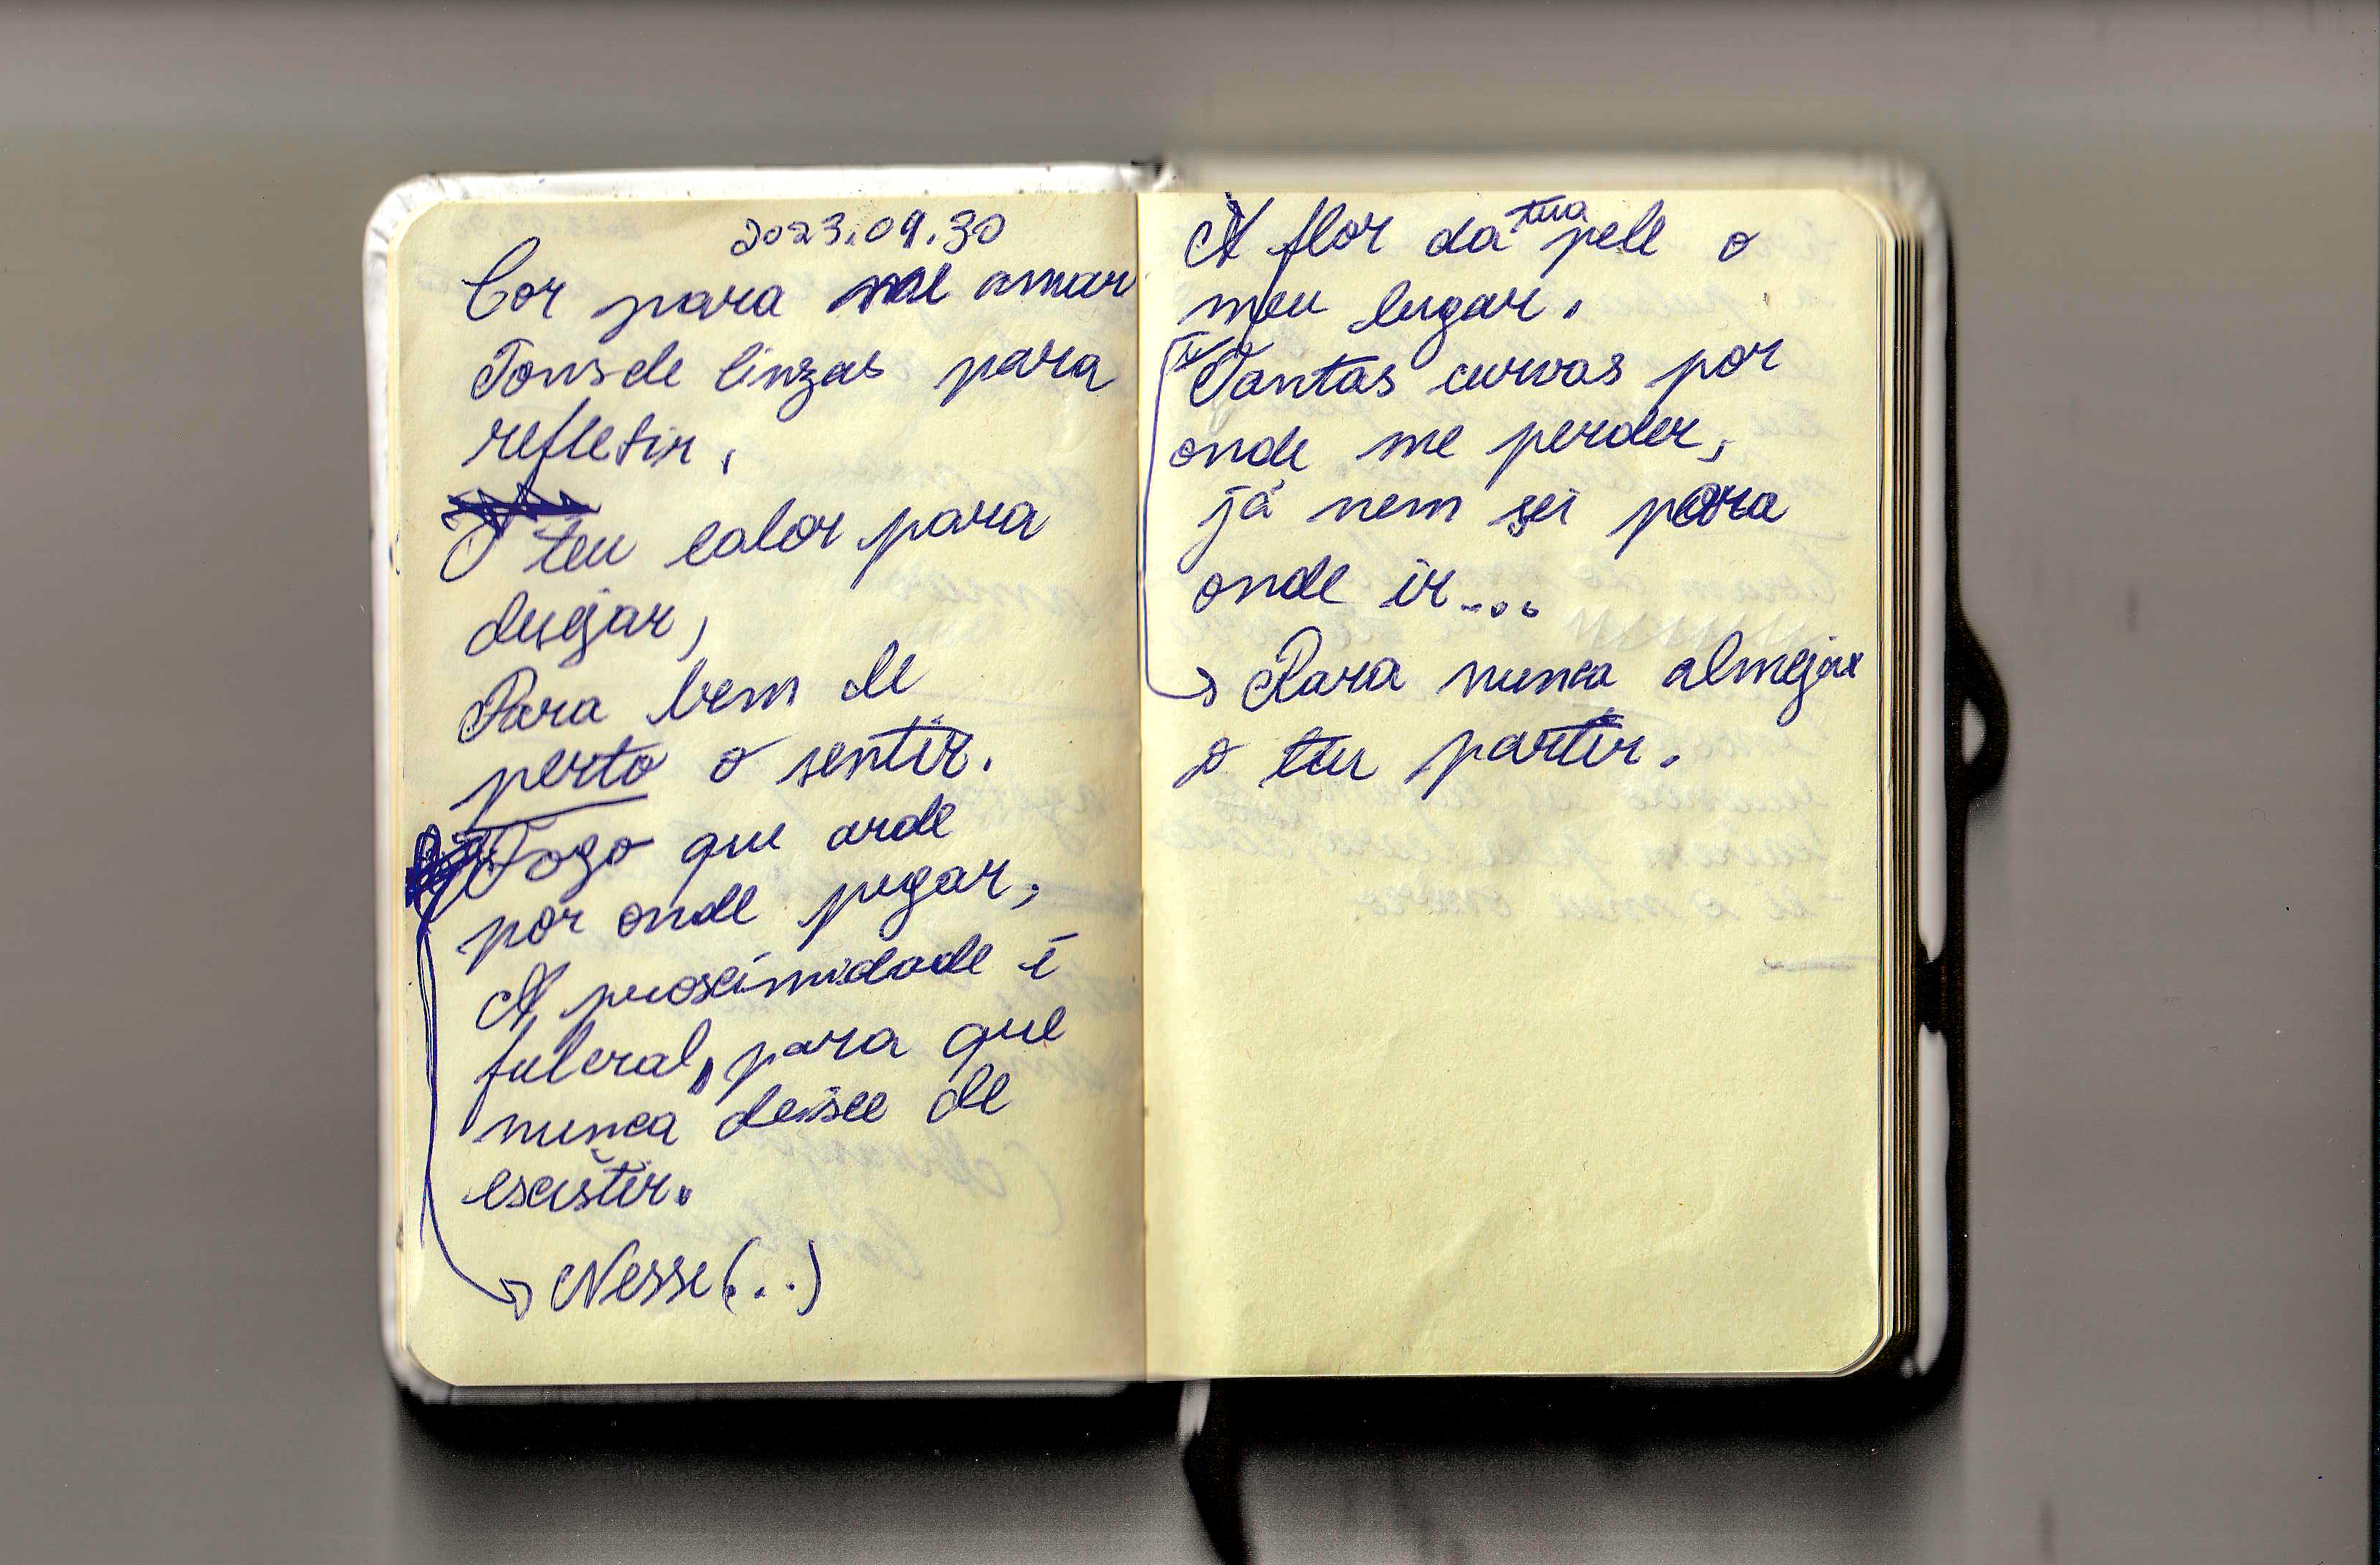 2023.09.30
Cor para me amar
Tons de cinzas para
refletir,
O teu calor para
desejar,
Para bem de
perto o sentir.
Fogo que arde
por onde pegar,
A proximidade é
fulcral, para que
nunca deixe de
existir.
Nesse (...)
A flor da tua pele o
meu lugar.
Tantas curvas por
onde me perder,
já nem sei para
onde ir....
Para nunca almejar
o teu partir.